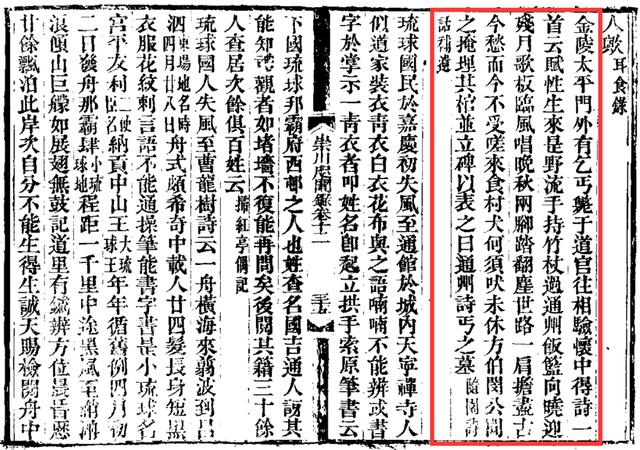 人毀耳食錄
金陵太平門外有乞丐斃于道官往相驗懷中得詩一
首云賦性生來是野流手持竹杖過通州飯籃向曉迎
殘月歌板臨風唱晚秋兩腳踏翻塵世路一肩擔盡古
今愁而今不受嗟來食村犬何須吠未休方伯閔公聞
之掩埋其棺並立碑以表之曰通州詩丐之墓隨園詩
話補遺
琉球國民於嘉慶初失風至通館於城內天寧禪寺人
似道家裝衣青衣白衣花布與之語喃喃不能辨或書
字於掌示一青衣者叩姓名卽起立拱手索原筆書云
崇川咫聞錄卷十二
下國琉球那霸府西郵之人也姓查名國吉通人訪其
能知詩觀者如堵墻不復能再問矣後閱其籍三十餘
人查居次餘俱百姓云紅亭偶記
琉球國人失風至曹龍樹詩云一舟橫海來翦波到呂
泗東場地名時四月廿八日舟式頗希奇中載人廿四髮長身短黑
衣服花紋刺言語不能通操筆能書字書是小琉球名
宮平友利二使臣名納貢中山王大琉球王年年循舊例四月初
二日發舟那霸肆小琉球地程距一千里中途黑風至洶
浪傾山巨艨如展翅無鼓記道里有鍼辨方位晨昏歷
廿餘飄泊此岸次自分不能生得生誠天賜檢閱舟中